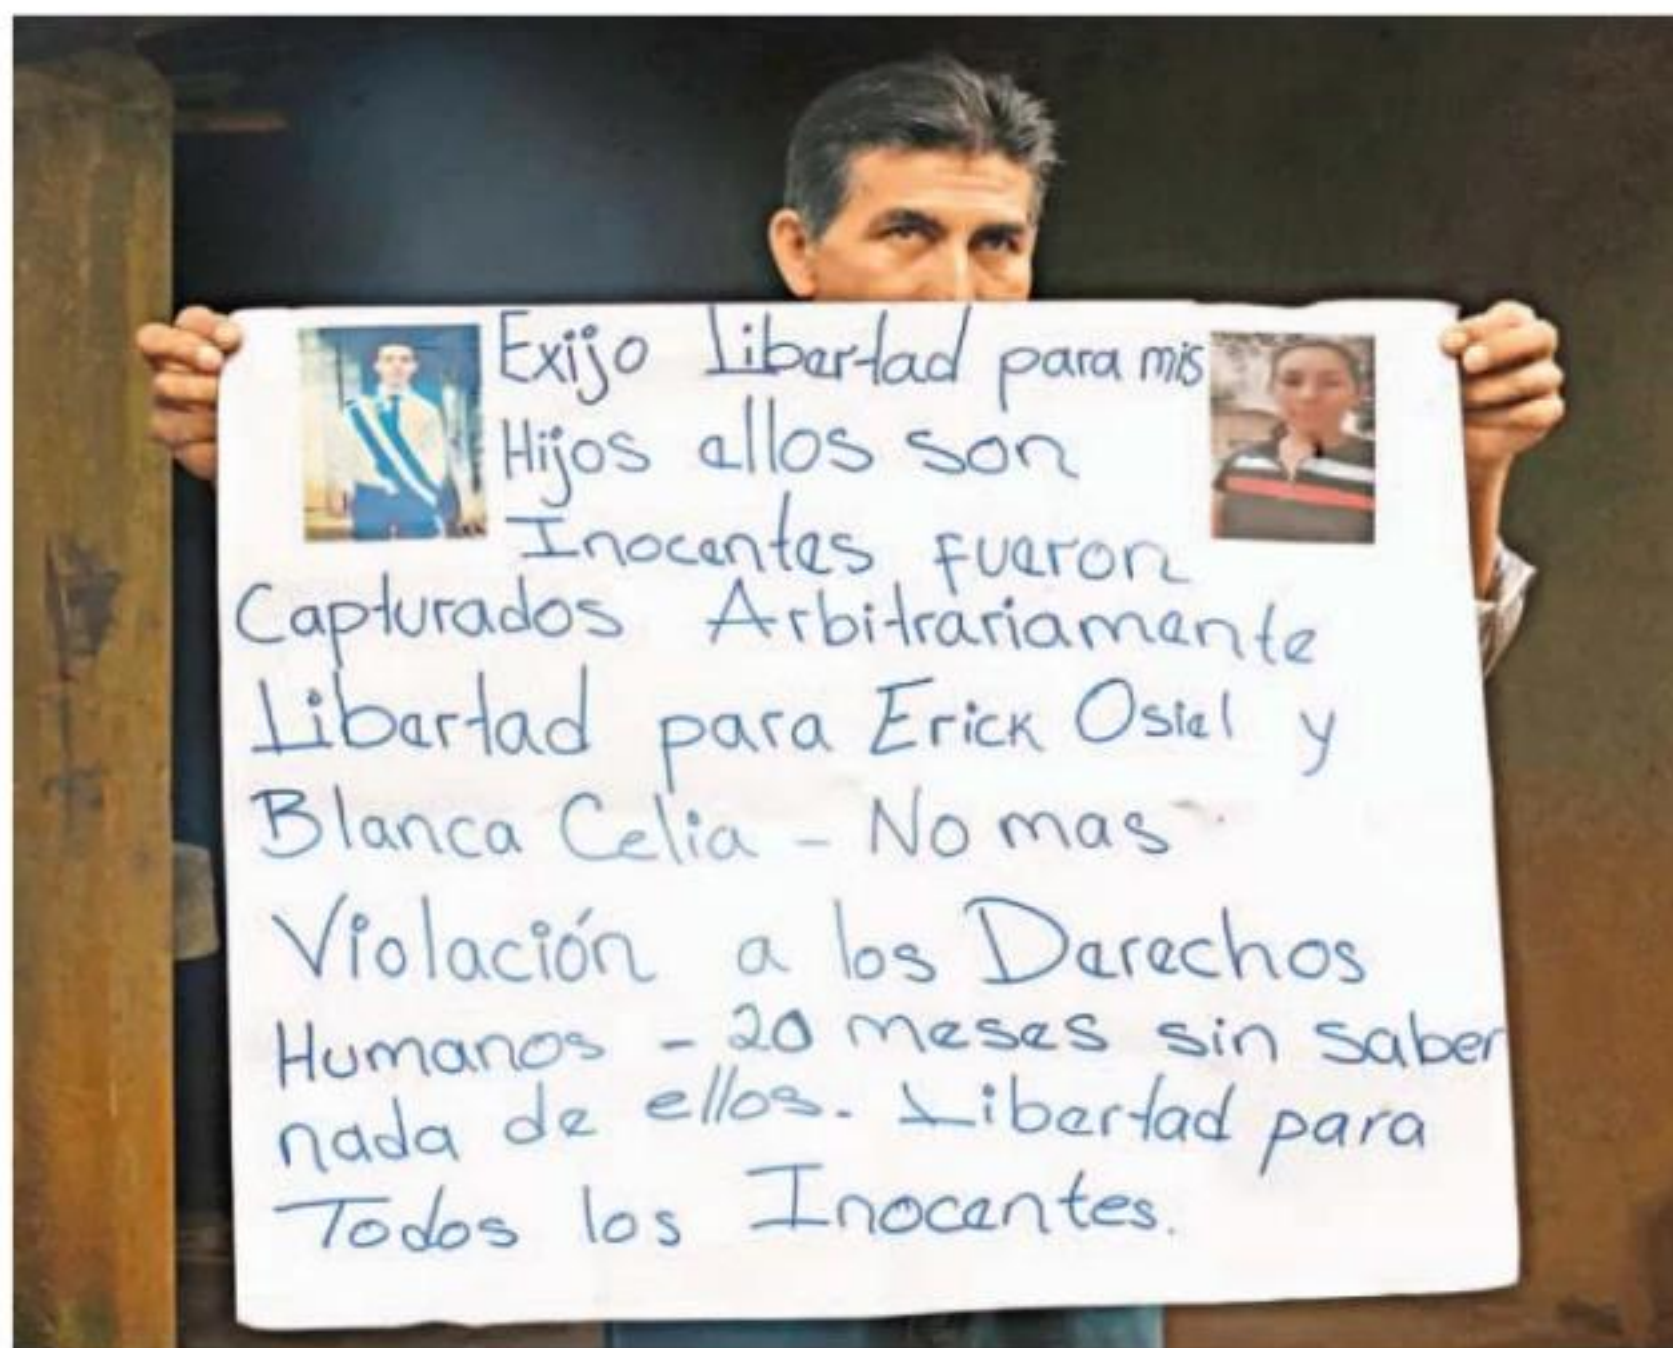 Exijo Libertad para mis
Hijos ellos son
Inocentes fueron
Capturados Arbitrariamente
Libertad para Erick Osiel y
Blanca Celia - No mas
Violación a los Derechos
Humanos - 20 meses sin saber
nada de ellos. Libertad para
Todos los Inocentes.